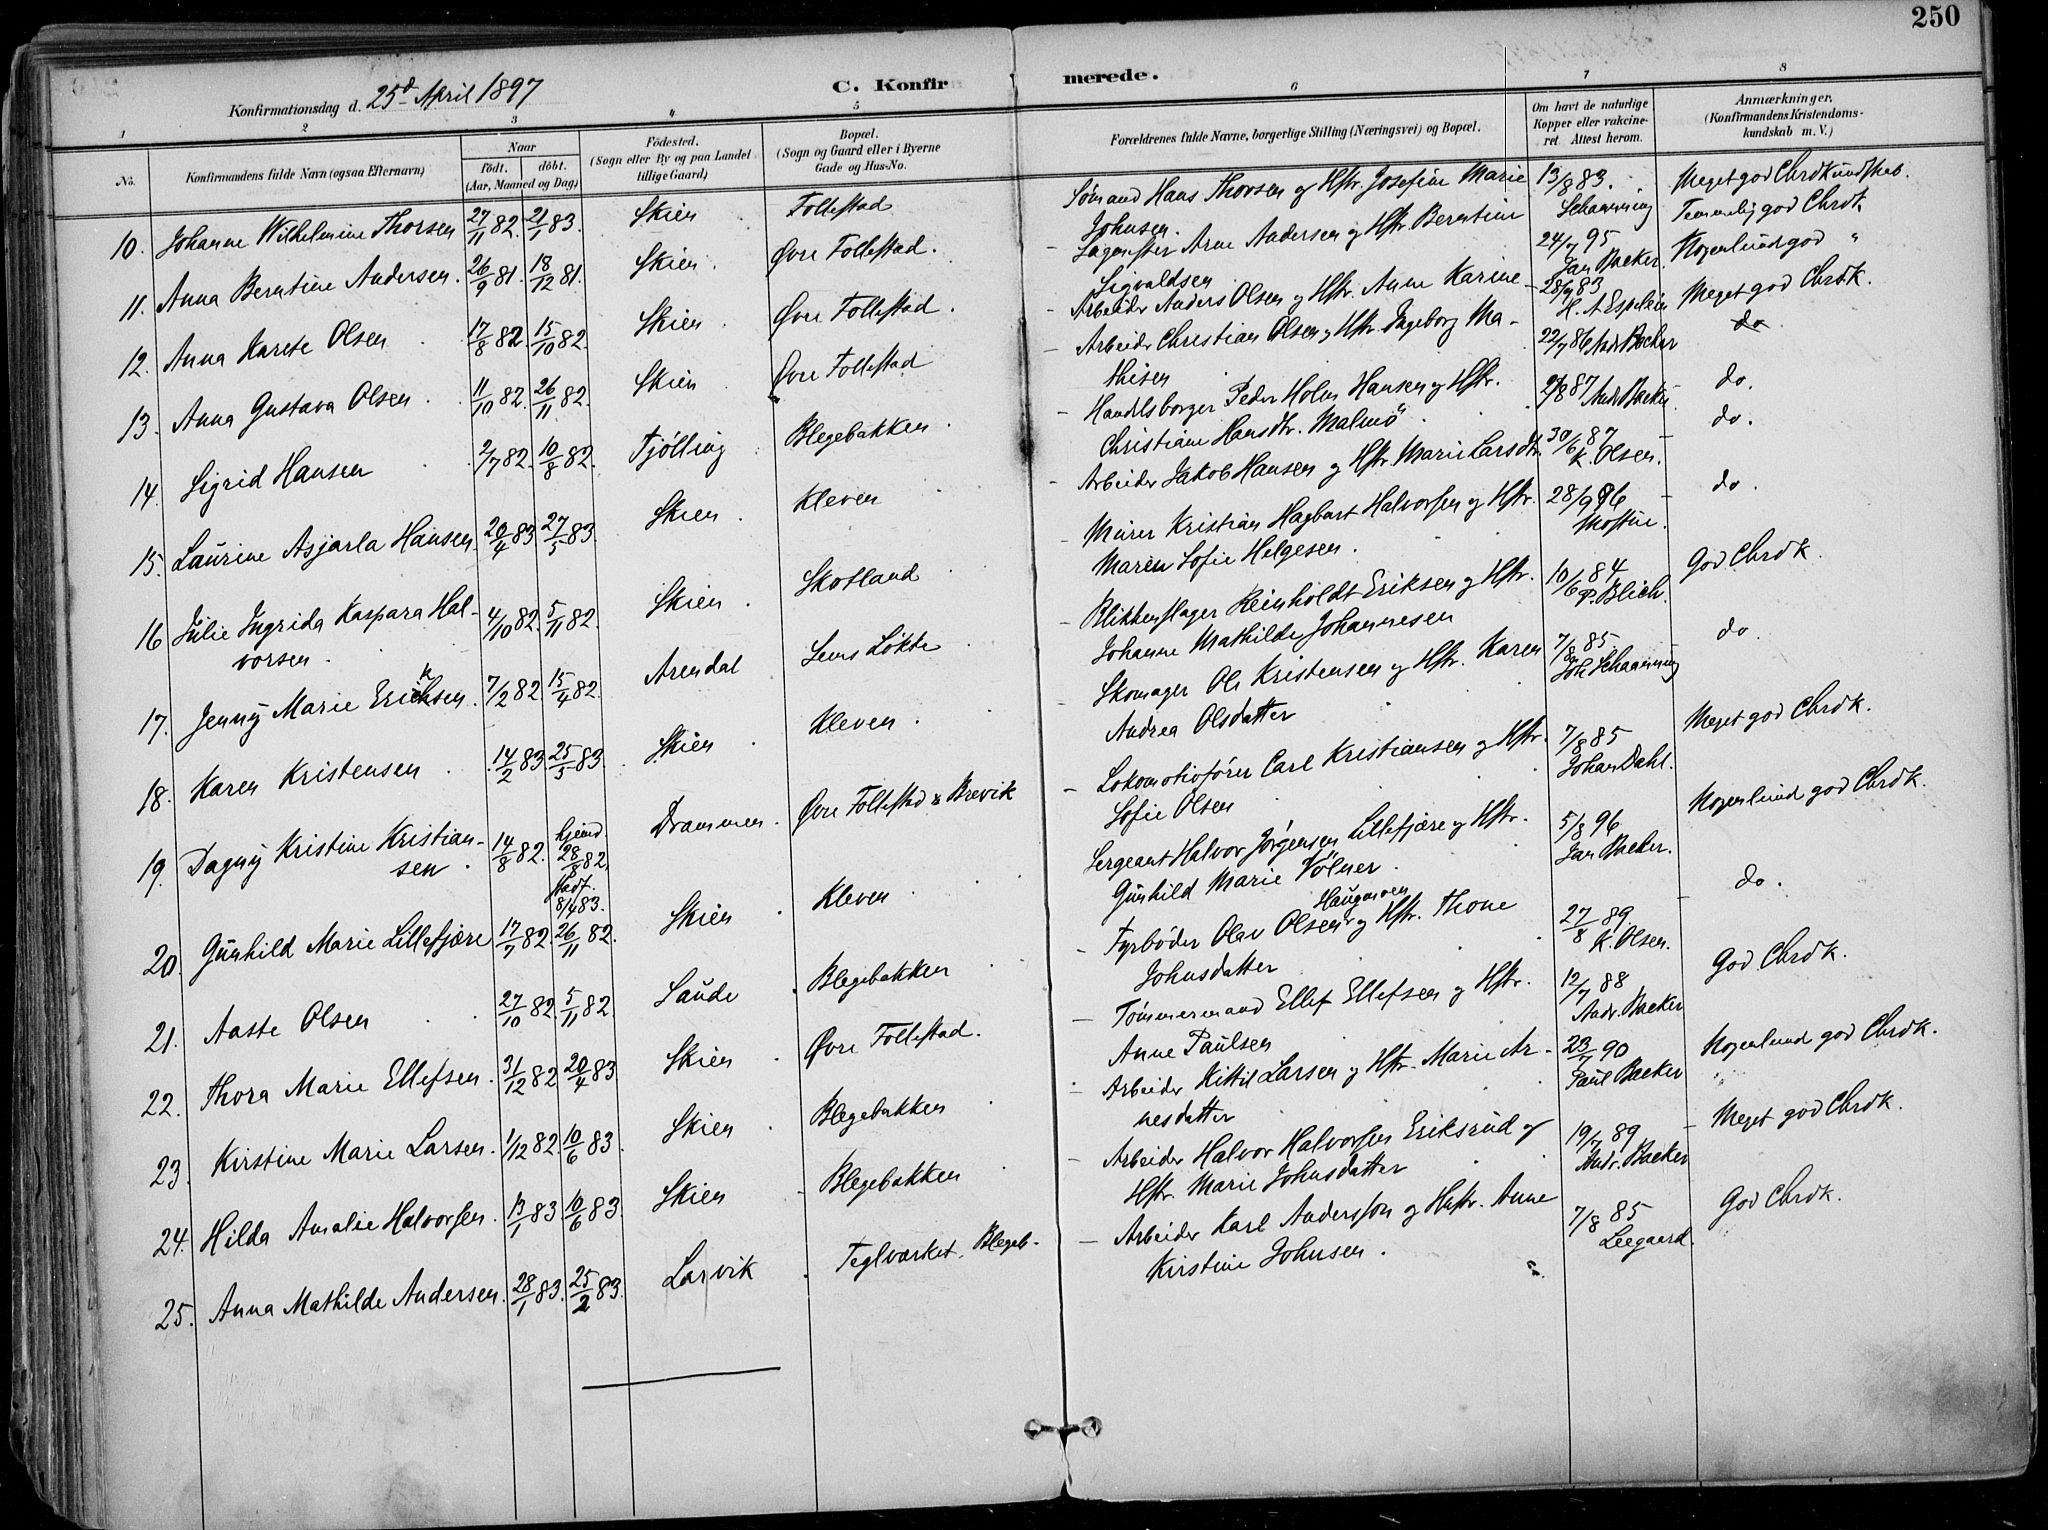 250
Konfirmationsdag d. 25d April 1897
C. Konfirmerede.
1 2 3 4 5 6 7 8
No. Konfirmandens fulde Navn (ogsaa Efternavn) Naar født. døbt. (Aar, Maaned og Dag) Fødested. (Sogn eller By og paa Landet tillige Gaard) Bopæl. (Sogn og Gaard eller i Byerne Gade og Hus-No. Forældrenes fulde Navne, borgerlige Stilling (Næringsvei) og Bopæl. Om havt de naturlige Kopper eller vakcineret Attest herom. Anmærkninger. (Konfirmandens Kristendomskundskab m. V.)
10. Johanne Wilhelmine Thorsen 27/11 82. 21/1 83. Skien Follestad Sømand Hans Thorsen og Hstr. Josefine Marie 13/8 83. Meget god Chrdkundskab.
Johnsen. Schanning Temmelig god Chrdk
11. Anna Berntine Andersen. 26/9 81. 18/12 81. Skien. Øvre Follestad. Arne Andersen og Hstr. Berntine 24/7 95 Nogenlunde god "
Sigvaldsen Jan Backer.
12. Anna Karete Olsen 17/8 82. 15/10 82. Skien Øvre Follestad. Arbeider Anders Olsen og Hstr. Anne Karine 28/9 83 Meget god Chrdk.
13. Anna Gustava Olsen 11/10 82. 26/11 82. Skien Øvre Follestad Arbeider Christian Olsen og Hstr. Ingeborg Ma- 22/7 86 Andr. Backer do.
thisen
14. Sigrid Hansen 2/7 82. 10/8 82. Tjølling Blegebakken. Handlsborger Peder Holm Hansen og Hstr. 87 Andr. Backer do.
Christiane Hansdtr. Malmö
15. Laurine Asjarla Hansen 20/4 83 27/5 83 Skien Kleven Arbeider Jakob Hansen og Hstr. Marie Larsdtr. 30/6 87 do.
K. Olsen.
16 Julie Ingrida Kaspara Hal- 4/10 82. 5/11 82. Skien. Skotland Murer Kristian Hagbart Halvorsen og Hstr. 28/9 do.
vorsen. Maren Sofie Helgesen.
17. Jenny Marie Eriksen. 7/2 82 15/4 82 Arendal Lems Løkte Blikkenslager Reinholdt Eriksen og Hstr. 10/6 84 God Chrdk.
Johanne Mathilde Johannesen P. Blich.
18. Karen Kristensen 14/2 83 25/5 83. Skien Kleven. Skomager Ole Kristensen og Hstr. Karen 7/8 85. do.
Andrea Olsdatter Joh Schanning
19. Dagny Kristine Kristian- 14/8 82. hjemd. 28/8 82. Drammen. Øvre Follestad & Brevik Lokomotivfører Carl Kristiansen og Hstr. 7/8 85 Meget god Chrdk.
sen stadf. 8/4 83. Sofie Olsen Johan Dahl.
20. Gunhild Marie Lillefjære 17/7 82. 26/11 82. Skien Kleven Sergeant Halvor Jørgensen Lillefjære og Hstr. 5/8 96 Nogenlund god Chrdk.
Gunhild Marie Völner. Jan Backer.
21. Aaste Olsen 27/10 82. 5/11 82. Saude Blegebakken Fyrbøder Olav Olsen Haugmoen og Hstr. Thone 27/8 89. do.
Johnsdatter K. Olsen.
22. Thora Marie Ellefsen. 31/12 82 20/4 83 Skien Øvre Follestad. Tømmermand Ellef Ellefsen og Hstr. 12/7 88 God Chrdk.
Anne Paulsen Andr. Backer
23. Kirstine Marie Larsen. 1/12 82. 10/6 83. Skien Blegebakken Arbeider Kittil Larsen og Hstr. Marie Ar- 90 Nogenlund god Chrdk.
nesdatter Paul Backer
24. Hilda Amalie Halvorsen. 13/1 83. 10/6 83. Skien Blegebakken Arbeider Halvor Halvorsen Eriksrud og 19/7 89 Meget god Chrdk.
Hstr. Marie Johnsdatter Andr. Backer
25. Anna Mathilde Andersen 28/1 83. 25/2 83. Larvik Teglværket. Blegeb. Arbeider Karl Andersson og Hustr. Anne 7/8 85 God Chrdk.
Kirstine Johnsen. Leegaard.